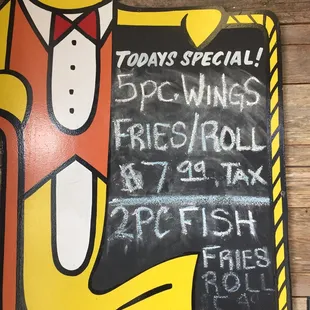 TODAYS SPECIAL!
5PC. WINGS
FRIES/ROLL
$7.99. TAX
2PC FISH
FRIES
ROLL